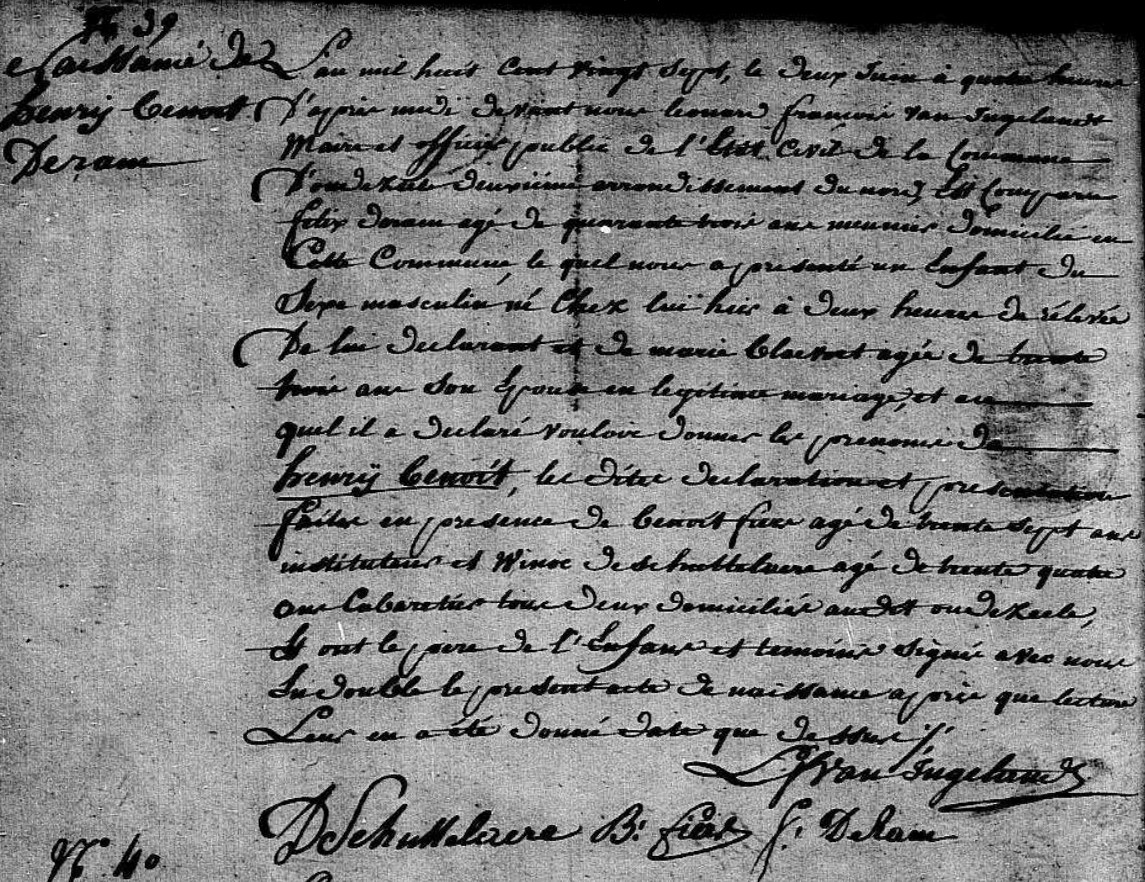 N.º 39
Naissance de
henrÿ Benoit
Deram
L'an mil huit Cent vingt Sept, le deux Juin à quatre heures
D'après midi devant nous leonard francois Van Ingelandt
Maire et officier public de l'Etat Civil de la Commune
D'oudezeele deuxiéme arrondissement du nord, Est Comparu
felix deram agé de quarante trois ans meunier domicilié en
Cette Commune, le quel nous a présenté un Enfant du
Sexe masculin né Chez lui hier à deux heures de rélevée
De lui declarant et de marie agée de trente
trois ans Son Epouse en legitime mariage, et au
quel il a declaré vouloir donner les prenoms de
henrÿ Benoit, les dites declaration et presentation
faites en presence de Benoit agé de trente Sept ans
instituteur et Winoc Deschuttelaere agé de trente quatre
ans Cabaretier tous deux domiciliés audit oudezeele,
Et ont le pere de l'Enfant et temoins Signé avec nous
En double le present acte de naissance après que lecture
Leur en a été donné date que dessus ./.
Van Ingelandt
DeSchuttelaere B: f: DeRam
N.º 40